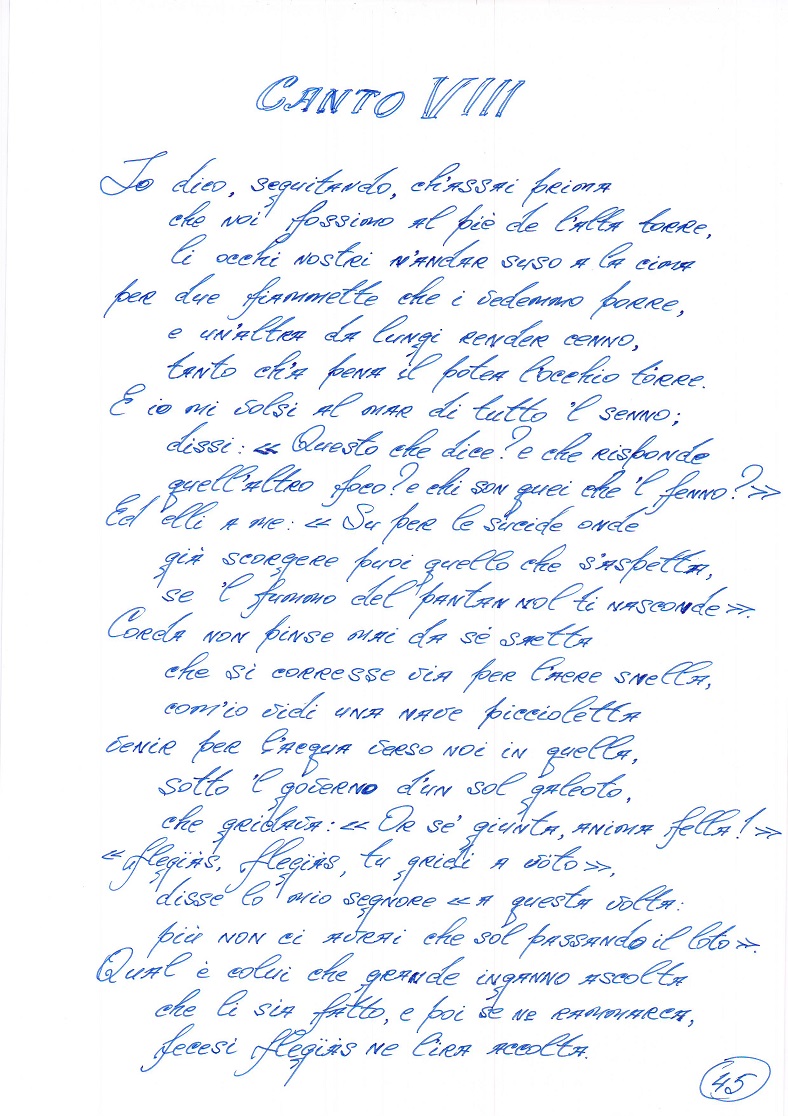 CANTO VIII
Io dico, seguitando, ch'assai prima
che noi fossimo al piè de l'alta torre,
li occhi nostri n'andar suso a la cima
per due fiammette che i vedemmo porre,
e un'altra da lungi render cenno,
tanto ch'a pena il potea l'occhio tòrre.
E io mi volsi al mar di tutto 'l senno;
dissi: « Questo che dice? e che risponde
quell'altro foco? e chi son quei che 'l fenno? »
Ed elli a me: « Su per le sucide onde
già scorgere puoi quello che s'aspetta,
se 'l fummo del pantan nol ti nasconde ».
Corda non pinse mai da sé saetta
che sì corresse via per l'aere snella,
com'io vidi una nave piccioletta
venir per l'acqua verso noi in quella,
sotto 'l governo d'un sol galeoto,
che gridava: « Or se' giunta, anima fella! »
« Flegïàs, Flegïàs, tu gridi a vòto »,
disse lo mio segnore « a questa volta:
più non ci avrai che sol passando il loto ».
Qual è colui che grande inganno ascolta
che li sia fatto, e poi se ne rammarca,
fecesi Flegïàs ne l'ira accolta.
45